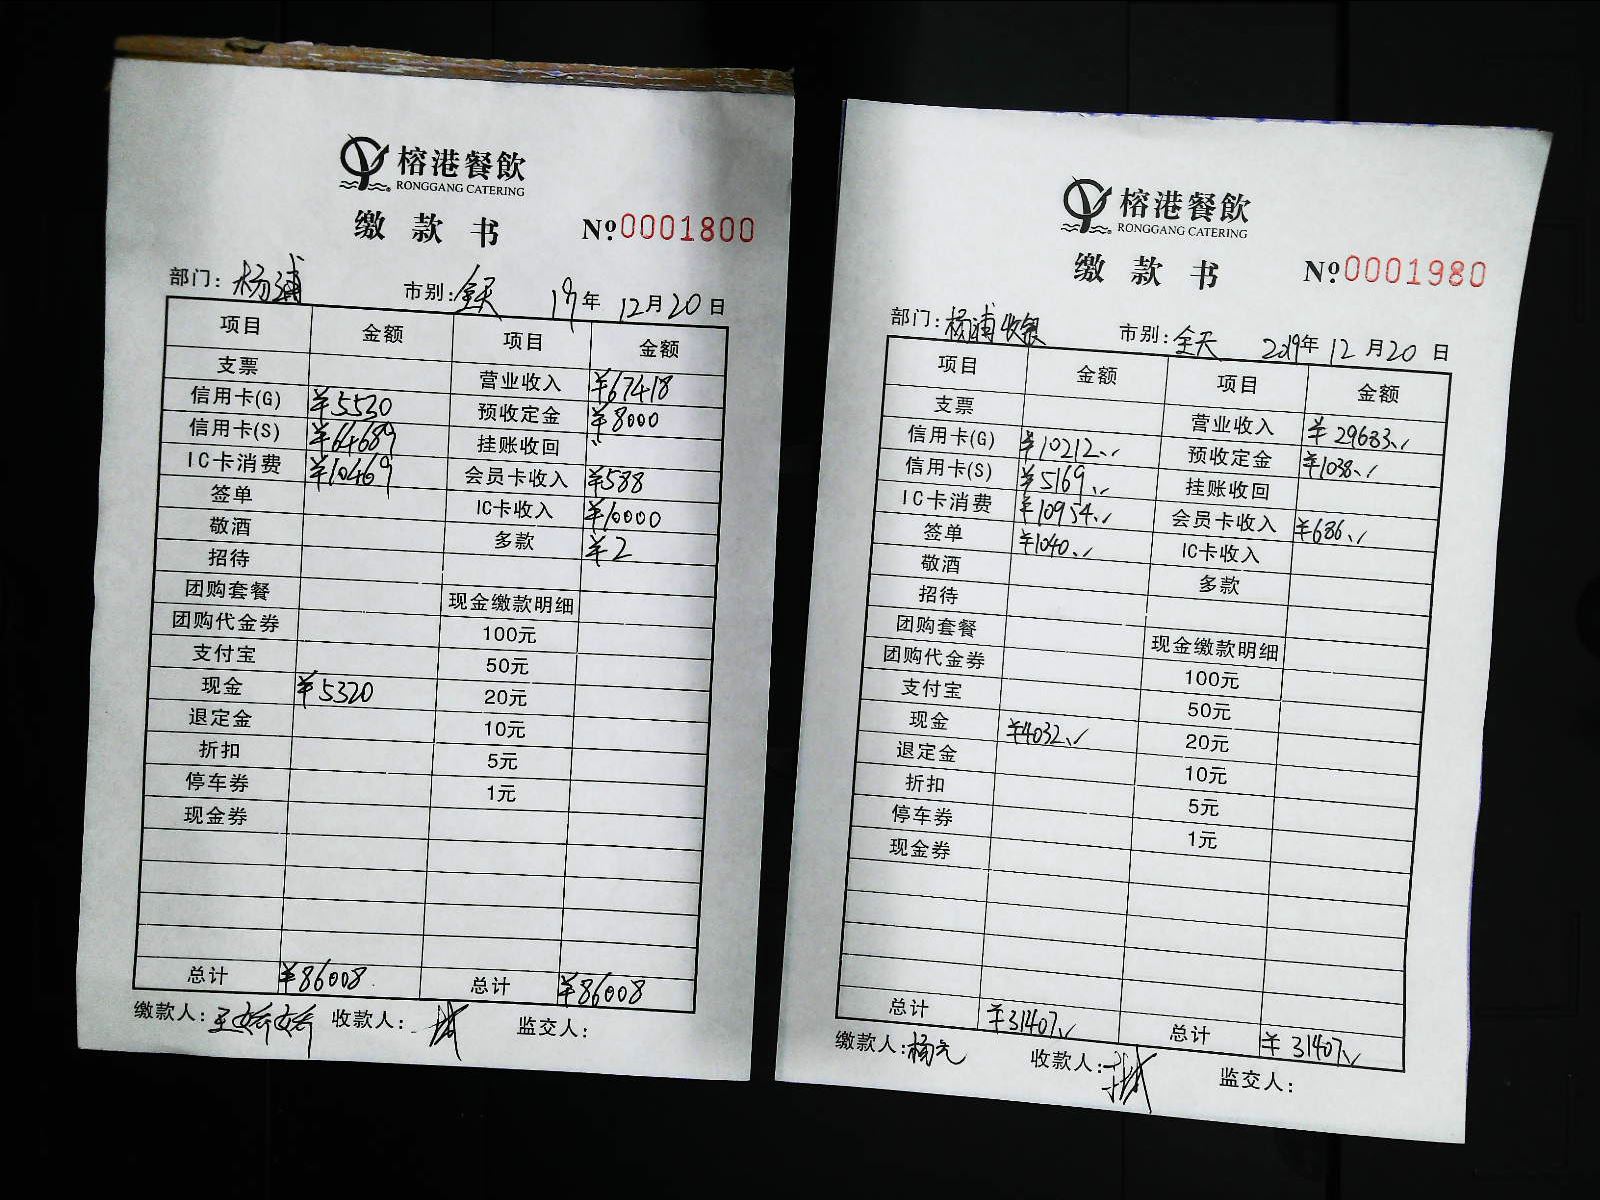 榕港餐飲
RONGGANG CATERING
缴款书 №0001800
部门：杨浦 市别：全天 19年12月20日
项目 金额 项目 金额
支票 营业收入 ¥67418
信用卡(G) ¥5530 预收定金 ¥8000
信用卡(S) ¥64689 挂账收回
IC卡消费 ¥10469 会员卡收入 ¥588
签单 IC卡收入 ¥10000
敬酒 多款 ¥2
招待
团购套餐 现金缴款明细
团购代金券 100元
支付宝 50元
现金 ¥5320 20元
退定金 10元
折扣 5元
停车券 1元
现金券
总计 ¥86008 总计 ¥86008
缴款人：王娇娇 收款人： 监交人：
榕港餐飲
RONGGANG CATERING
缴款书 №0001980
部门：杨浦收银 市别：全天 2019年12月20日
项目 金额 项目 金额
支票 营业收入 ¥29683
信用卡(G) ¥10212 预收定金 ¥1038
信用卡(S) ¥5169 挂账收回
IC卡消费 ¥10954 会员卡收入 ¥686
签单 ¥1040 IC卡收入
敬酒 多款
招待
团购套餐 现金缴款明细
团购代金券 100元
支付宝 50元
现金 ¥4032 20元
退定金 10元
折扣 5元
停车券 1元
现金券
总计 ¥31407 总计 ¥31407
缴款人：杨元 收款人： 监交人：